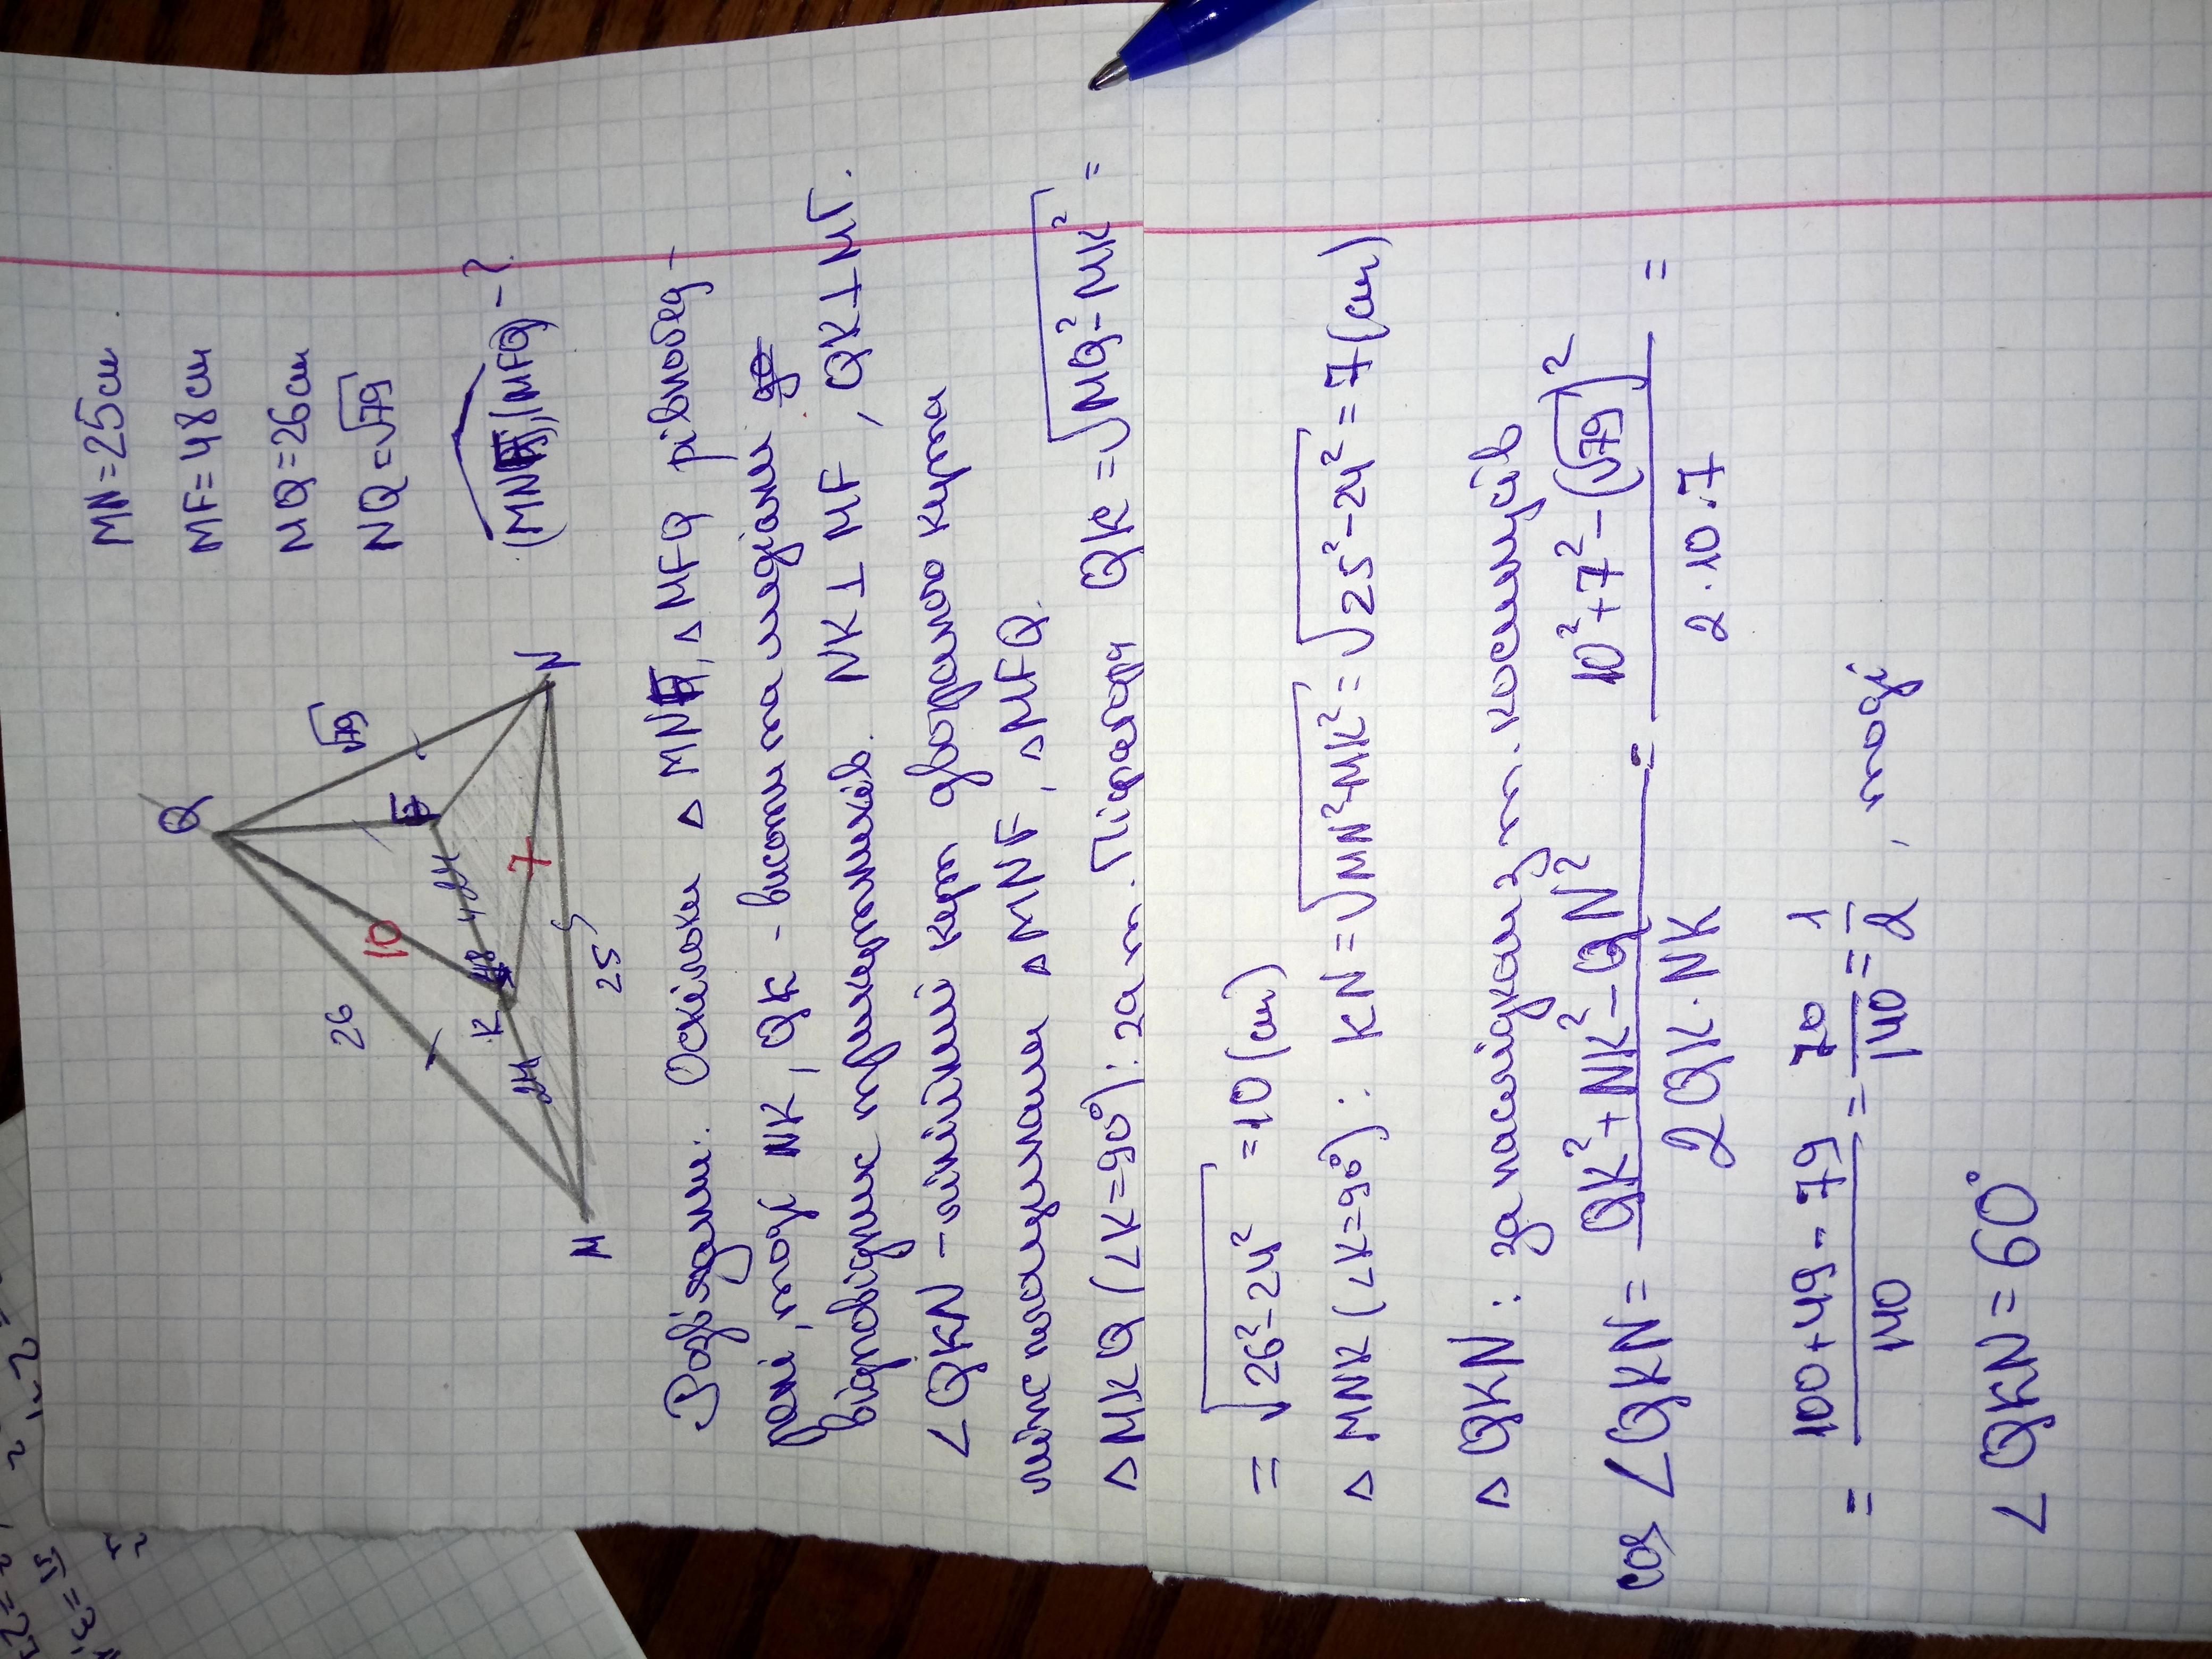 MN=25см
MF=48см
MQ=26см
NQ=√79
(MNF),(MFQ)-?
Q
√79
26
10
F
N
K
48
24
24
7
25
M
Розв'язання: Оскільки △ MNF, △ MFQ рівнобед-
рені, тоді NK, QK - висоти та медіани
відповідних трикутників. NK⊥MF, QK⊥MF.
∠QKN - лінійний кут двогранного кута
між площинами △MNF, △MFQ.
△MKQ (∠K=90°): за т. Піфагора QK=√MQ²-MK² =
=√26²-24² =10(см)
△MNK (∠K=90°): KN=√MN²-MK²=√25²-24²=7(см)
△QKN: за наслідком з т. косинусів
cos ∠QKN= QK²+NK²-QN² / 2QK·NK = 10²+7²-(√79)² / 2·10·7 =
= 100+49-79 / 140 = 70/140 = 1/2, тоді
∠QKN=60°